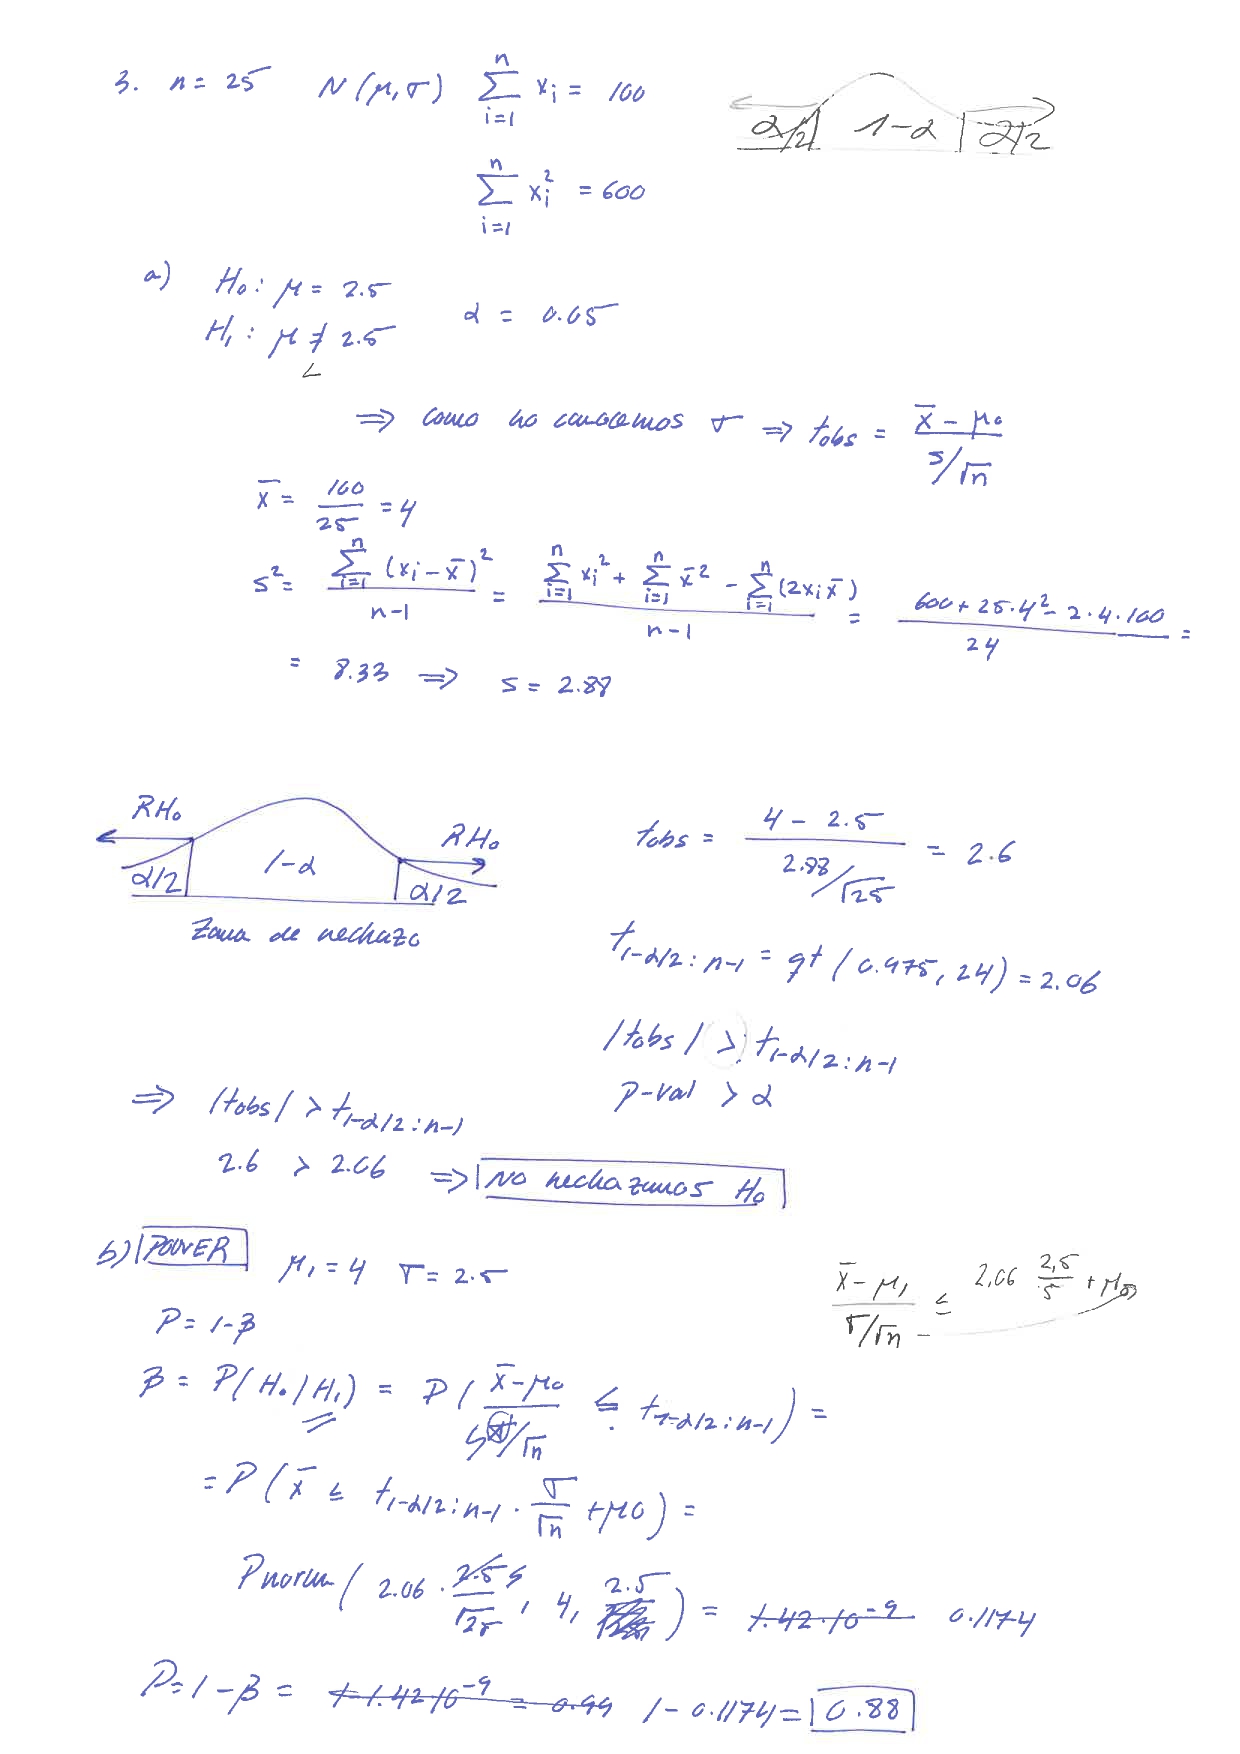 3. n = 25 N(μ,σ) ∑_{i=1}^{n} x_i = 100
α/2 1-α α/2
∑_{i=1}^{n} x_i^2 = 600
a) H_0: μ = 2.5
α = 0.05
H_1: μ ≠ 2.5
<
⇒ como no conocemos σ ⇒ t_obs = (x̄ - μ_0)/(s/√n)
x̄ = 100/25 = 4
s^2 = ∑_{i=1}^{n} (x_i - x̄)^2 / (n-1) = (∑_{i=1}^{n} x_i^2 + ∑_{i=1}^{n} x̄^2 - ∑_{i=1}^{n} (2x_i x̄)) / (n-1) = (600 + 25·4^2 - 2·4·100) / 24 =
= 8.33 ⇒ s = 2.88
RH_0 RH_0
α/2 1-α α/2
Zona de rechazo
t_obs = (4 - 2.5)/(2.88/√25) = 2.6
t_{1-α/2:n-1} = qt(0.975, 24) = 2.06
|t_obs| > t_{1-α/2:n-1}
p-val > α
⇒ |t_obs| > t_{1-α/2:n-1}
2.6 > 2.06 ⇒ No rechazamos H_0
b) POWER μ_1 = 4 σ = 2.5
(x̄ - μ_1)/(σ/√n) ≤ 2,06 2,5/5 + μ_0
P = 1-β
β = P(H_0/H_1) = P((x̄ - μ_0)/(s/√n) ≤ t_{1-α/2:n-1}) =
= P(x̄ ≤ t_{1-α/2:n-1} · σ/√n + μ0) =
Pnorm(2.06 · 2.5 5/√25, 4, 2.5) = 1.42·10^-9 0.1174
P = 1-β = 1-1.42·10^-9 = 0.99 1 - 0.1174 = 0.88